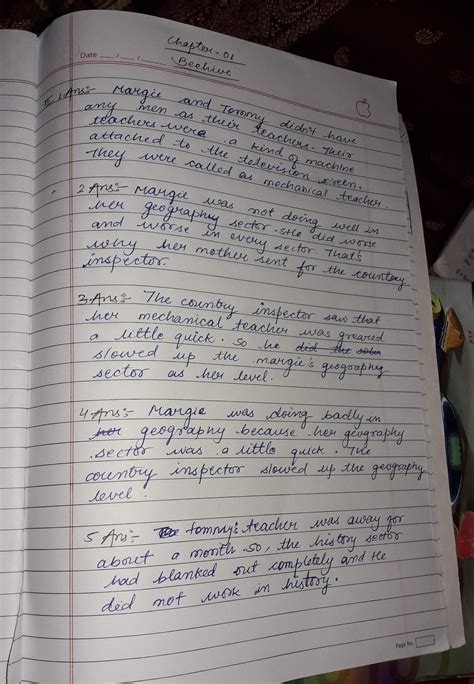 Chapter-01
Date __/__/__
Beehive
II. 1 Ans:- Margie and Tommy didn't have
any men as their teachers. Their
teachers were a kind of machine
attached to the television screen.
They were called as mechanical teacher
2 Ans:- Margie was not doing well in
her geography sector. She did worse
and worse in every sector. That's
why her mother sent for the country
inspector.
3 Ans:- The country inspector saw that
her mechanical teacher was geared
a little quick. So he did the
slowed up the margie's geography
sector as her level.
4 Ans:- Margie was doing badly in
her geography because her geography
sector was a little quick. The
country inspector slowed up the geography
level.
5 Ans:- tommy's teacher was away for
about a month. so, the history sector
had blanked out completely and He
did not work in history.
Page No.